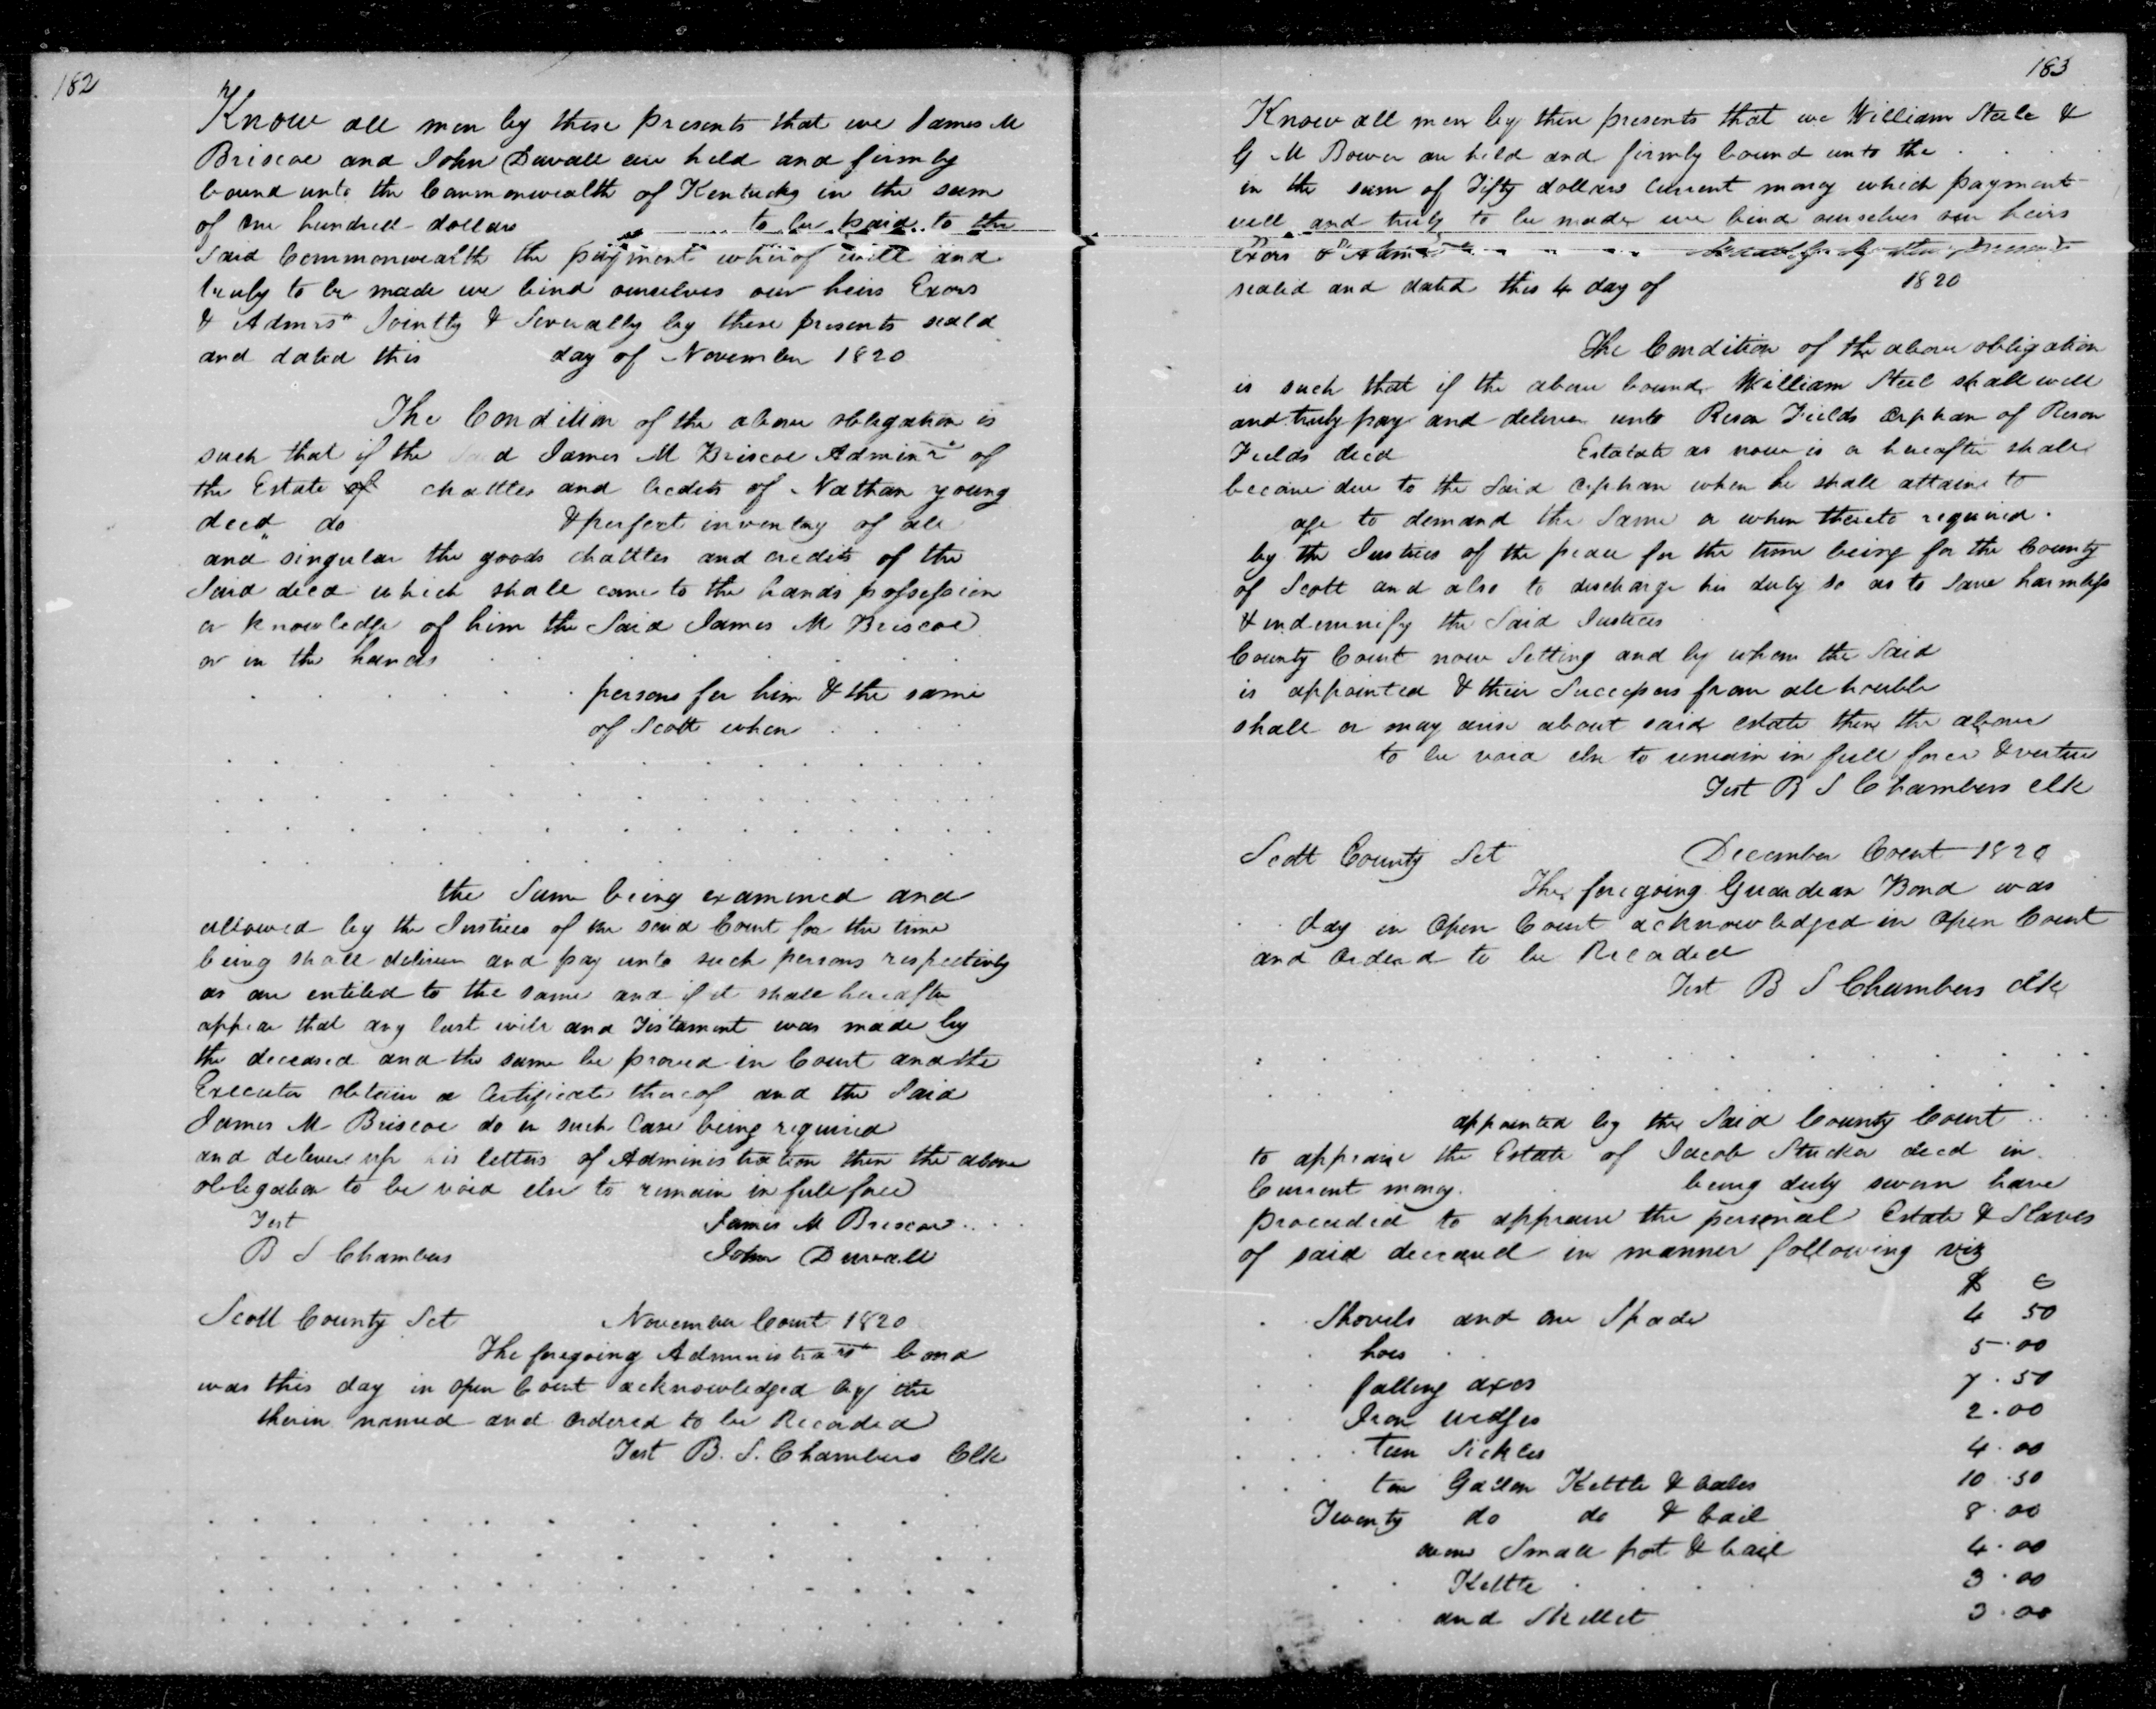 182
Know all men by these presents that we James M
Briscoe and John Duvall are held and firmly
bound unto the Commonwealth of Kentucky in the sum
of one hundred dollars to be paid to the
Said Commonwealth the payment whereof will and
truly to be made we bind ourselves our heirs Exors
& Admrs" Jointly & Severally by these presents seald
and dated this day of November 1820
The Condition of the above obligation is
such that if the d James M Briscoe Adminr of
the Estate of chattles and credits of Nathan young
decd" do & perfect inventory of all
and singular the goods chattles and credits of the
Said decd which shall come to the hands possession
or knowledge of him the Said James M Briscoe
or in the hands
persons for him & the same
of Scott when
the Same being examined and
allowed by the Justices of the said Court for the time
being shall deliver and pay unto such persons respectively
as are entitled to the same and if it shall hereafter
appear that any last will and Testament was made by
the deceased and the same be proved in Court and the
Executor obtain a Certificate thereof and the Said
James M Briscoe do in such Case being required
and deliver up his letters of Administration then the above
obligation to be void else to remain in full force
Test James M Briscoe
B S Chambers John Duvall
Scott County Sct November Court 1820
The foregoing Administrars bond
was this day in open Court acknowledged by the
therin named and ordered to be Recorded
Test B. S. Chambers Clk
183
Know all men by these presents that we William Steele &
G M Bower are held and firmly bound unto the
in the sum of Fifty dollars Current money which payment
will and truly to be made we bind ourselves our heirs
Exors & Adm by these presents
sealed and dated this 4 day of 1820
The Condition of the above obligation
is such that if the above bound William Steel shall well
and truly pay and deliver unto Reson Fields orphan of Reson
Fields decd Estatate as now is or hereafter shall
become due to the Said orphan when he shall attain to
age to demand the Same or when thereto required.
by the Justices of the peace for the time being for the County
of Scott and also to discharge his duty so as to save harmless
& indemnify the Said Justices
County Court now Setting and by whom the Said
is appointed & their Successors from all trouble
shall or may arise about said estate then the above
to be void else to remain in full force & vertue
Test B S Chambers clk
Scott County Sct December Court 1820
The foregoing Guardean Bond was
day in Open Court acknowledged in Open Court
and Orderd to be Recorded
Test B S Chambers clk
appointed by the Said County Court
to appraise the Estate of Jacob Stucker decd in
Current money. being duly sworn have
proceeded to appraise the personal Estate & Slaves
of said deceased in manner following viz
$ C
Shovels and one Spade 4 50
hoes 5.00
falling axes 7.50
Iron wedges 2.00
Teen Sickles 4.00
ten Gallon Kettle & bales 10.50
Twenty do do & bail 8.00
oven Small pot & bail 4.00
Kettle 3.00
and Skellet 3.00